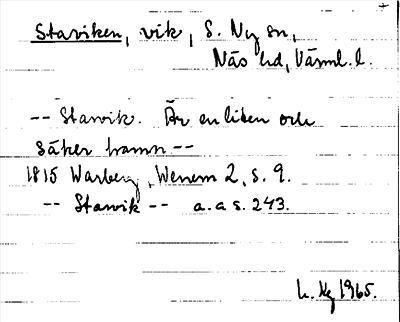 Staviken, vik, S. Ny sn,
Näs hd, Värml. l.
-- Stawik. Är en liten och
säker hamn --
1815 Warberg, Wenern 2, s. 9.
-- Stawik -- a. a s. 243.
1965.